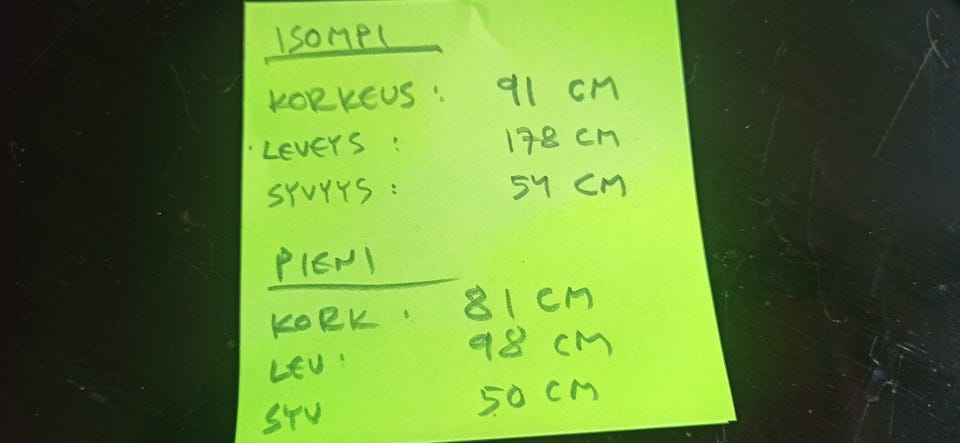 ISOMPI
KORKEUS: 91 CM
LEVEYS: 178 CM
SYVYYS: 54 CM
PIENI
KORK: 81 CM
LEV: 98 CM
SYV 50 CM